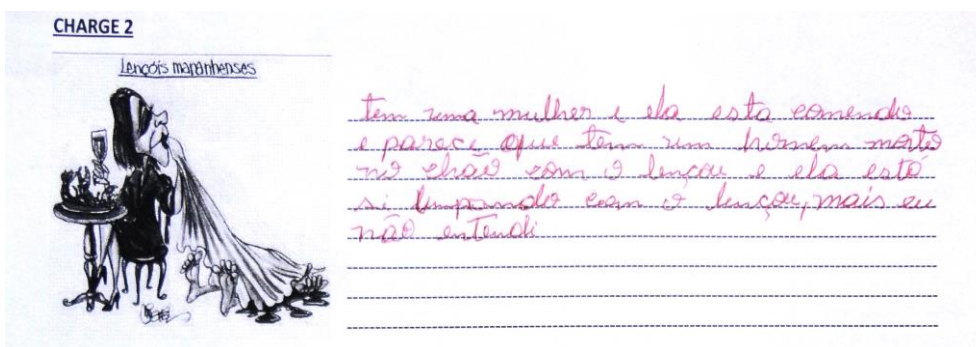 CHARGE 2
Lençóis maranhenses
tem uma mulher e ela esta comendo
e pareci que tem um homem morto
no chão com o lençou e ela está
si limpando com o lençou, mais eu
não entendi